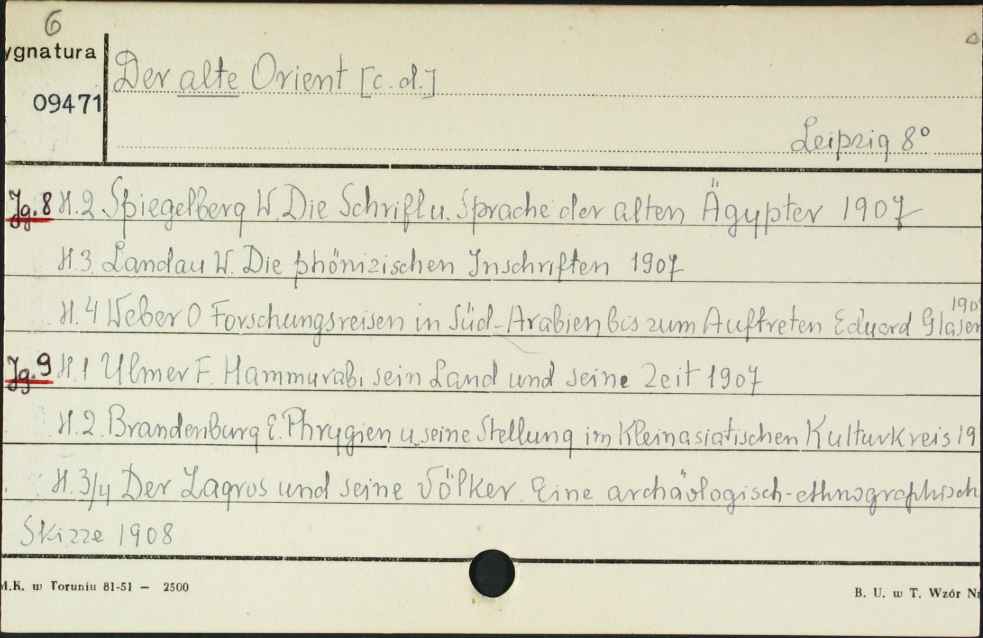 6
ygnatura
09471
Der alte Orient [c.d.]
Leipzig 8°
Jg. 8 H.2 Spiegelberg W. Die Schrift u. Sprache der alten Ägypter 1907
H.3 Landau W. Die phönizischen Inschriften 1907
H.4 Weber O Forschungsreisen in Süd-Arabien bis zum Auftreten Eduard Glaser 190
Jg. 9 H.1 Ulmer F. Hammurabi sein Land und seine Zeit 1907
H.2. Brandenburg E. Phrygien u. seine Stellung im Kleinasiatischen Kulturkreis 19
H.3/4 Der Zagros und seine Völker. Eine archäologisch-ethnographisch
Skizze 1908
M.K. w Toruniu 81-51 — 2500
B. U. w T. Wzór Nr